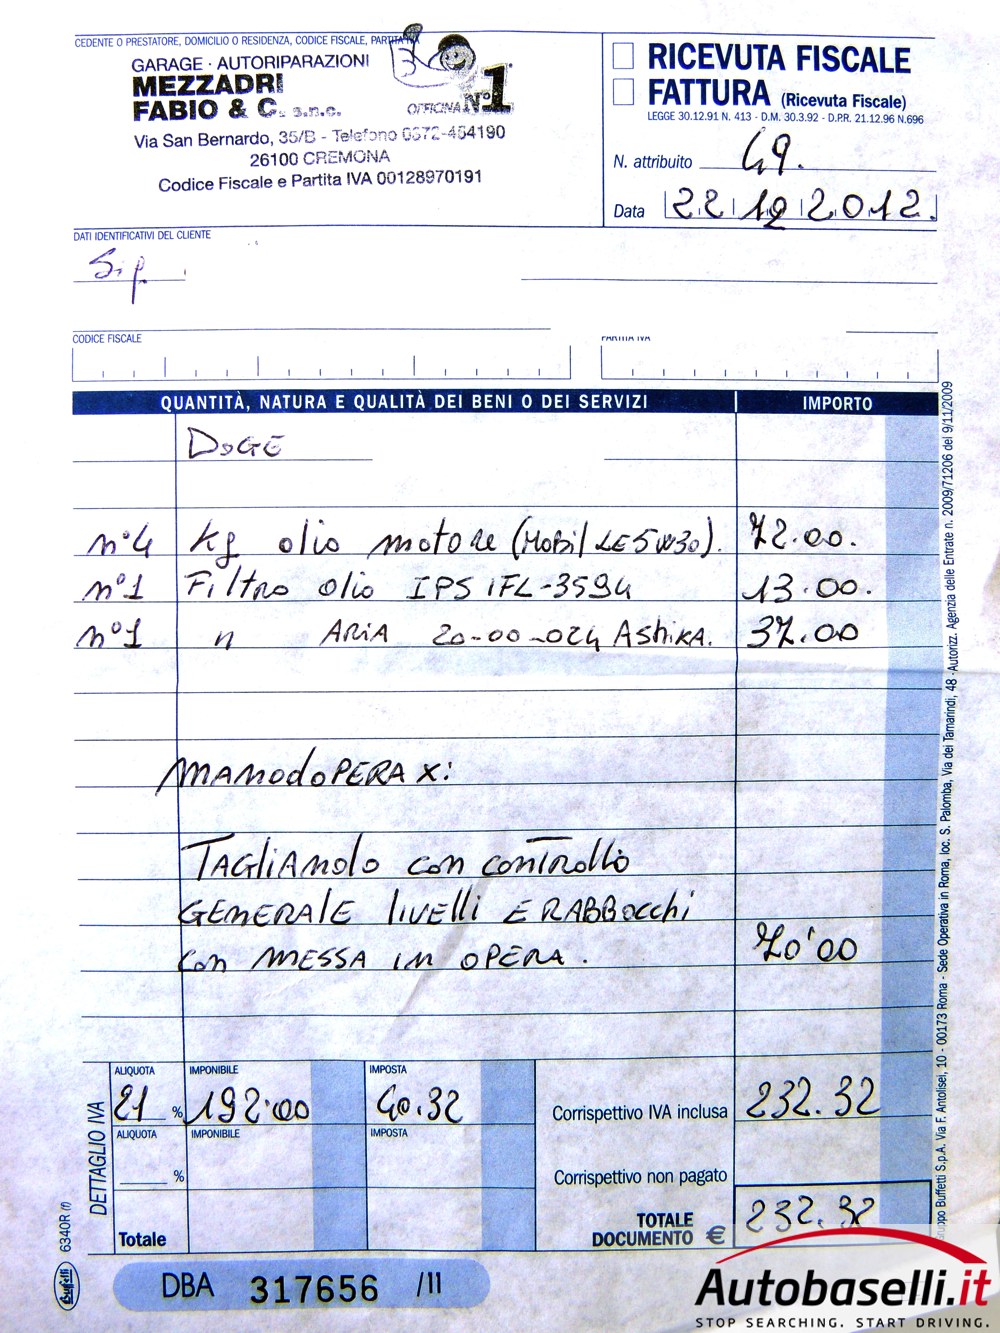 CEDENTE O PRESTATORE, DOMICILIO O RESIDENZA, CODICE FISCALE, PARTITA IVA
GARAGE - AUTORIPARAZIONI
MEZZADRI
FABIO & C. s.n.c.
OFFICINA N°1
Via San Bernardo, 35/B - Telefono 0372-454190
26100 CREMONA
Codice Fiscale e Partita IVA 00128970191
RICEVUTA FISCALE
FATTURA (Ricevuta Fiscale)
LEGGE 30.12.91 N. 413 - D.M. 30.3.92 - D.P.R. 21.12.96 N.696
N. attribuito 49.
Data 22 12 2012.
DATI IDENTIFICATIVI DEL CLIENTE
Sig.
CODICE FISCALE
PARTITA IVA
QUANTITÀ, NATURA E QUALITÀ DEI BENI O DEI SERVIZI IMPORTO
DoGE
n°4 Kg olio motore (Mobil LE 5W30). 72.00.
n°1 Filtro olio IPS IFL-3594 13.00.
n°1 " ARIA 20-00-024 ASHIKA. 37.00
MANODOPERA X:
TAGLIANDO con controllo
GENERALE livelli E RABBOCCHI
con MESSA IN OPERA. 70'00
DETTAGLIO IVA
ALIQUOTA IMPONIBILE IMPOSTA
21 % 192.00 40.32
Corrispettivo IVA inclusa 232.32
ALIQUOTA IMPONIBILE IMPOSTA
%
Corrispettivo non pagato
Totale
TOTALE DOCUMENTO € 232.32
6340R (f)
Buffetti
DBA 317656 /11
Gruppo Buffetti S.p.A. Via F. Antolisei, 10 - 00173 Roma - Sede Operativa in Roma, loc. S. Palomba, Via dei Tamarindi, 48 - Autorizz. Agenzia delle Entrate n. 2009/71206 del 9/11/2009
Autobaselli.it
STOP SEARCHING. START DRIVING.